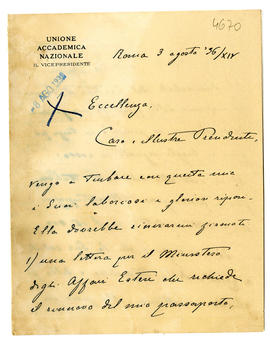 4670
UNIONE
ACCADEMICA
NAZIONALE
IL VICEPRESIDENTE
Roma 3 agosto '36/XIV
8 AGO 1936
Eccellenza,
Caro e Illustre Presidente,
vengo a turbare con questa mia
i Suoi laboriosi e gloriosi riposi.
Ella dovrebbe rinviarmi firmati
1) una lettera per il Ministero
degli Affari Esteri che richiede
il rinnovo del mio passaporto,